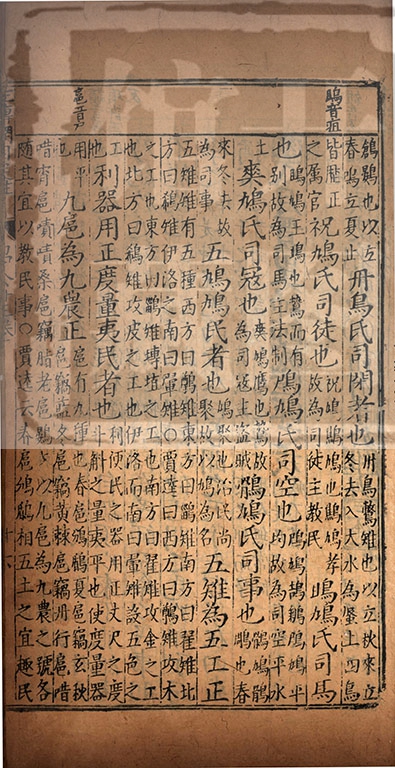 鴡音疽
鶬鷃也以立
春鳴立夏止
丹鳥氏司閉者也
丹鳥鷩雉也以立秋來立
冬去入大水為蜃上四鳥
皆歷正
之屬官
祝鳩氏司徒也
祝鳩鷦鳩也鷦鳩孝
故為司徒主教民
鴡鳩氏司馬
也
鴡鳩王鴡也鷙而有
別故為司馬主法制
鳲鳩氏司空也
鳲鳩鴶鵴鳲鳩平
均故為司空平水
土
爽鳩氏司寇也
爽鳩鷹也鷙故
為司寇主盜賊
鶻鳩氏司事也
鶻鳩鶻
鵰也春
來冬去故
為司事
五鳩鳩民者也
鳩聚也治民尚
聚故以鳩為名
五雉為五工正
五雉雉有五種西方曰鷷雉東方曰鶅雉南方曰翟雉北
方曰鵗雉伊洛之南曰翬雉○賈逵曰西方曰鷷雉攻木
之工也東方曰鶅雉摶埴之工也南方曰翟雉攻金之工
也北方曰鵗雉攻皮之工也伊洛而南曰翬雉設五色之
工
也
利器用正度量夷民者也
利便民之器用正丈尺之度
斗斛之量夷平也使度量器
用平
也
九扈為九農正
扈有九種也春扈鳻鶞夏扈竊玄秋
扈竊藍冬扈竊黃棘扈竊丹行扈唶
唶宵扈嘖嘖桑扈竊脂老扈鷃鷃以九扈為九農之號各
隨其宜以教民事○賈逵云春扈鳻鶞相五土之宜趣民
扈音戶